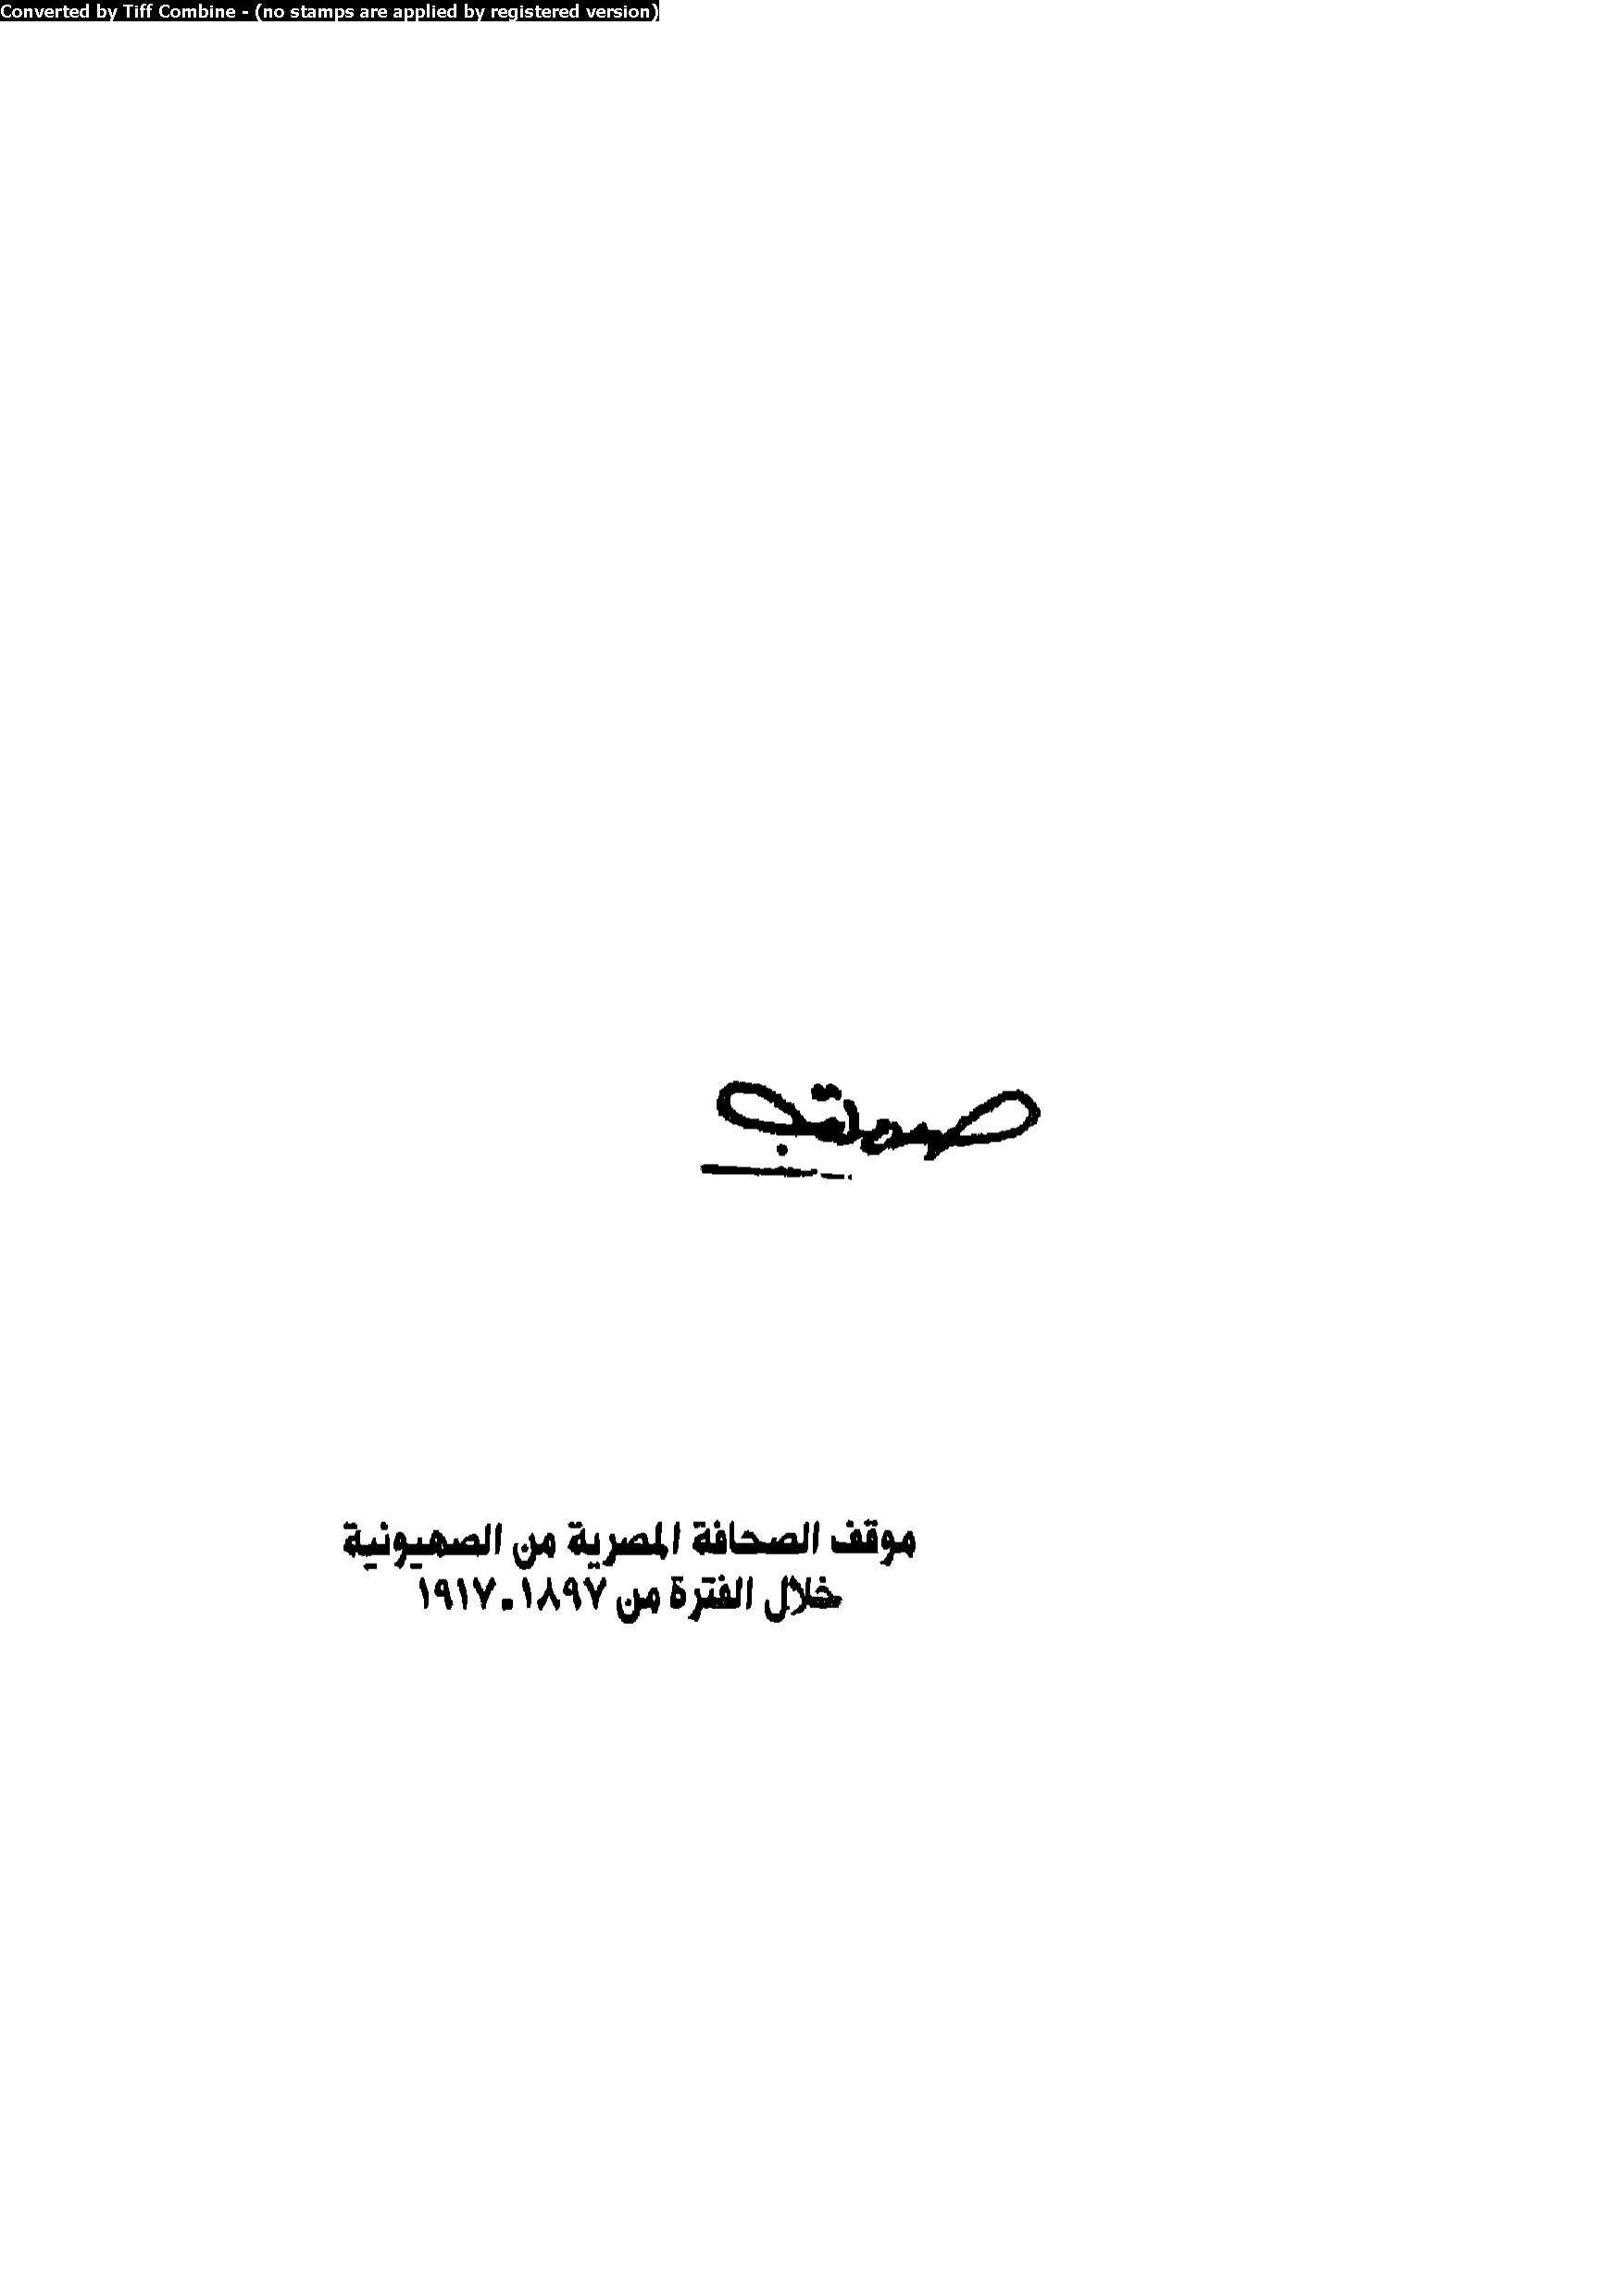 Converted by Tiff Combine - (no stamps are applied by registered version)
موقف الصحافة المصرية من الصهيونية
خلال الفترة من ١٨٩٧-١٩١٧